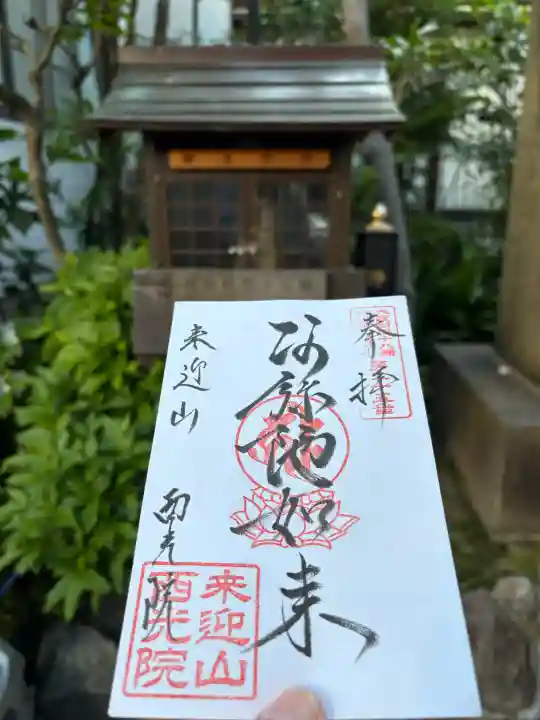 奉拝
阿弥陀如来
来迎山
西光院
来迎山
西光院